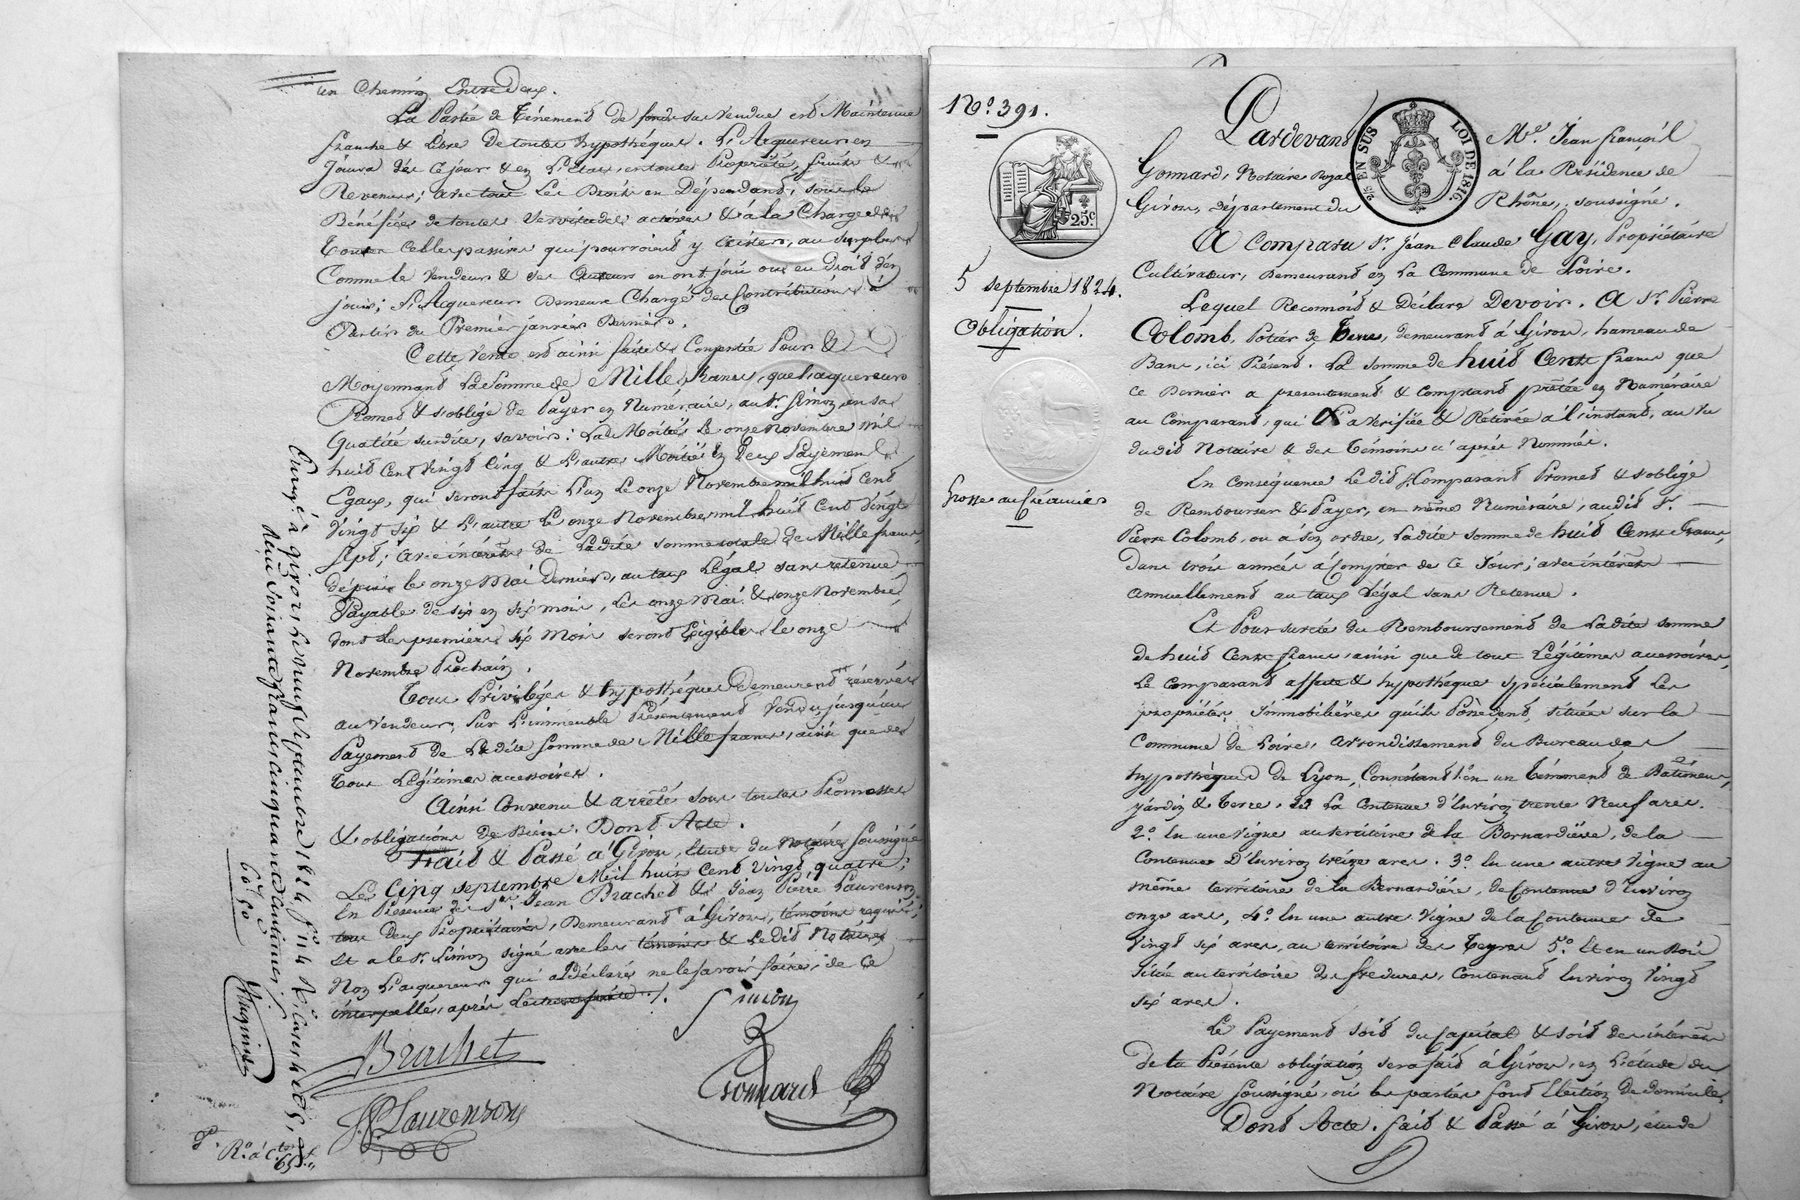 un Chemin Entre Deux.
La Partie de Ténement de fonds sus vendue est Maintenue
franche & Libre De toutes hypothèques. L'Acquereur en
Jouira dès ce jour & en L'état, en toute Propriété, fruits &
Revenus, avec tous Les Droits en Dépendants, sous le
Bénéfice de toutes servitudes actives & à la Charge de
toutes celles passives qui pourroient y exister, au surplus
Comme le Vendeur & ses Auteurs en ont joui ou eu Droit d'en
jouir; L'Acquereur Demeure Chargé des Contributions à
Partir du Premier janvier Dernier.
Cette Vente est ainsi faite & Consentie Pour &
Moyennant La Somme de Mille francs, que L'acquereur
Promet & s'oblige de Payer en Numéraire, au Sr. Simon, en sa
Qualité susdite, savoir: La Moitié Le onze Novembre mil
huit Cent Vingt Cinq & L'autre Moitié En Deux Payements
Egaux, qui seront faits L'un Le onze Novembre mil huit Cent
Vingt six & L'autre Le onze Novembre mil huit Cent Vingt
Sept; avec intérêts de Ladite somme totale de Mille francs
depuis le onze Mai Dernier, au taux Légal sans retenue
Payable de six en six mois, Les onze Mai & onze Novembre,
dont Les premiers six Mois seront Exigibles le onze
Novembre Prochain.
Tous Privilèges & hypothèques Demeurent réservés
au Vendeur, sur L'immeuble Présentement Vendu, jusqu'au
Payement de Ladite Somme de Mille francs, ainsi que de
tous Légitimes accessoires.
Ainsi Convenu & arrêté sous toutes Promesses
& obligations de Biens. Dont Acte.
Fait & Passé à Givors, Etude du Notaire Soussigné
Le Cinq septembre Mil huit Cent Vingt quatre;
En Présence de Srs. Jean Brachet & Jean Pierre Laurenson
tous Deux Propriétaires, Demeurant à Givors, témoins requis;
Et a le Sr. Simon signé avec les témoins & Ledit Notaire
Non L'acquereur qui a Déclaré ne le savoir faire, de ce
interpellé, après Lecture faite ./.
Simon
Brachet
Gonnard
Laurenson
Enreg. à Givors Le neuf Septembre 1824 fo. 114
Reçu Soixante francs Cinquante centimes.
60f 50c
No. 391.
25c.
5 septembre 1824.
Obligation.
Grosse au Créancier
Pardevant Me. Jean François
2/5 EN SUS
LOI DE 1816.
Gonnard, Notaire Royal à la Résidence de
Givors, département du Rhône, soussigné.
A Comparu Sr. Jean Claude Gay, Propriétaire
Cultivateur, Demeurant en La Commune de Loire.
Lequel Reconnoit & Déclare Devoir. A Sr. Pierre
Colomb, Potier de Terre, demeurant à Givors, hameau de
Bans, ici Présent. La somme de huit Cents francs que
ce Dernier a présentement & comptant prêtée en Numéraire
au Comparant, qui L'a Vérifiée & Retirée à l'instant, au Vu
dudit Notaire & des Témoins ci après Nommés.
En Conséquence Ledit Comparant Promet & s'oblige
de Rembourser & Payer, en même Numéraire, audit Sr.
Pierre Colomb, ou à son ordre, Ladite somme de huit Cents francs,
Dans trois années à Compter de ce Jour; avec intérêts
annuellement au taux Légal sans Retenue.
Et Pour sureté du Remboursement de Ladite somme
de huit Cents francs, ainsi que de tous Légitimes accessoires,
Le Comparant affecte & hypothèque spécialement Les
propriétés Immobilières qu'il Possède, situées sur la
Commune de Loire, Arrondissement du Bureau des
hypothèques de Lyon, Consistant 1o. en un Ténement de Bâtiments,
Jardin & terre, de La Contenue d'Environ trente Neuf ares.
2o. En une Vigne au territoire de la Bernardière, de la
Contenue D'Environ treize ares. 3o. En une autre Vigne au
même territoire de la Bernardière, de Contenue d'Environ
onze ares, 4o. En une autre Vigne de la Contenue de
Vingt six ares, au territoire des Teyres 5o. Et en un Bois
situé au territoire de fredures, Contenant Environ Vingt
six ares.
Le Payement soit du Capital & soit des intérêts
de La Présente obligation sera fait à Givors, en L'étude du
Notaire soussigné, où les parties font Election de domicile.
Dont Acte. fait & Passé à Givors, étude